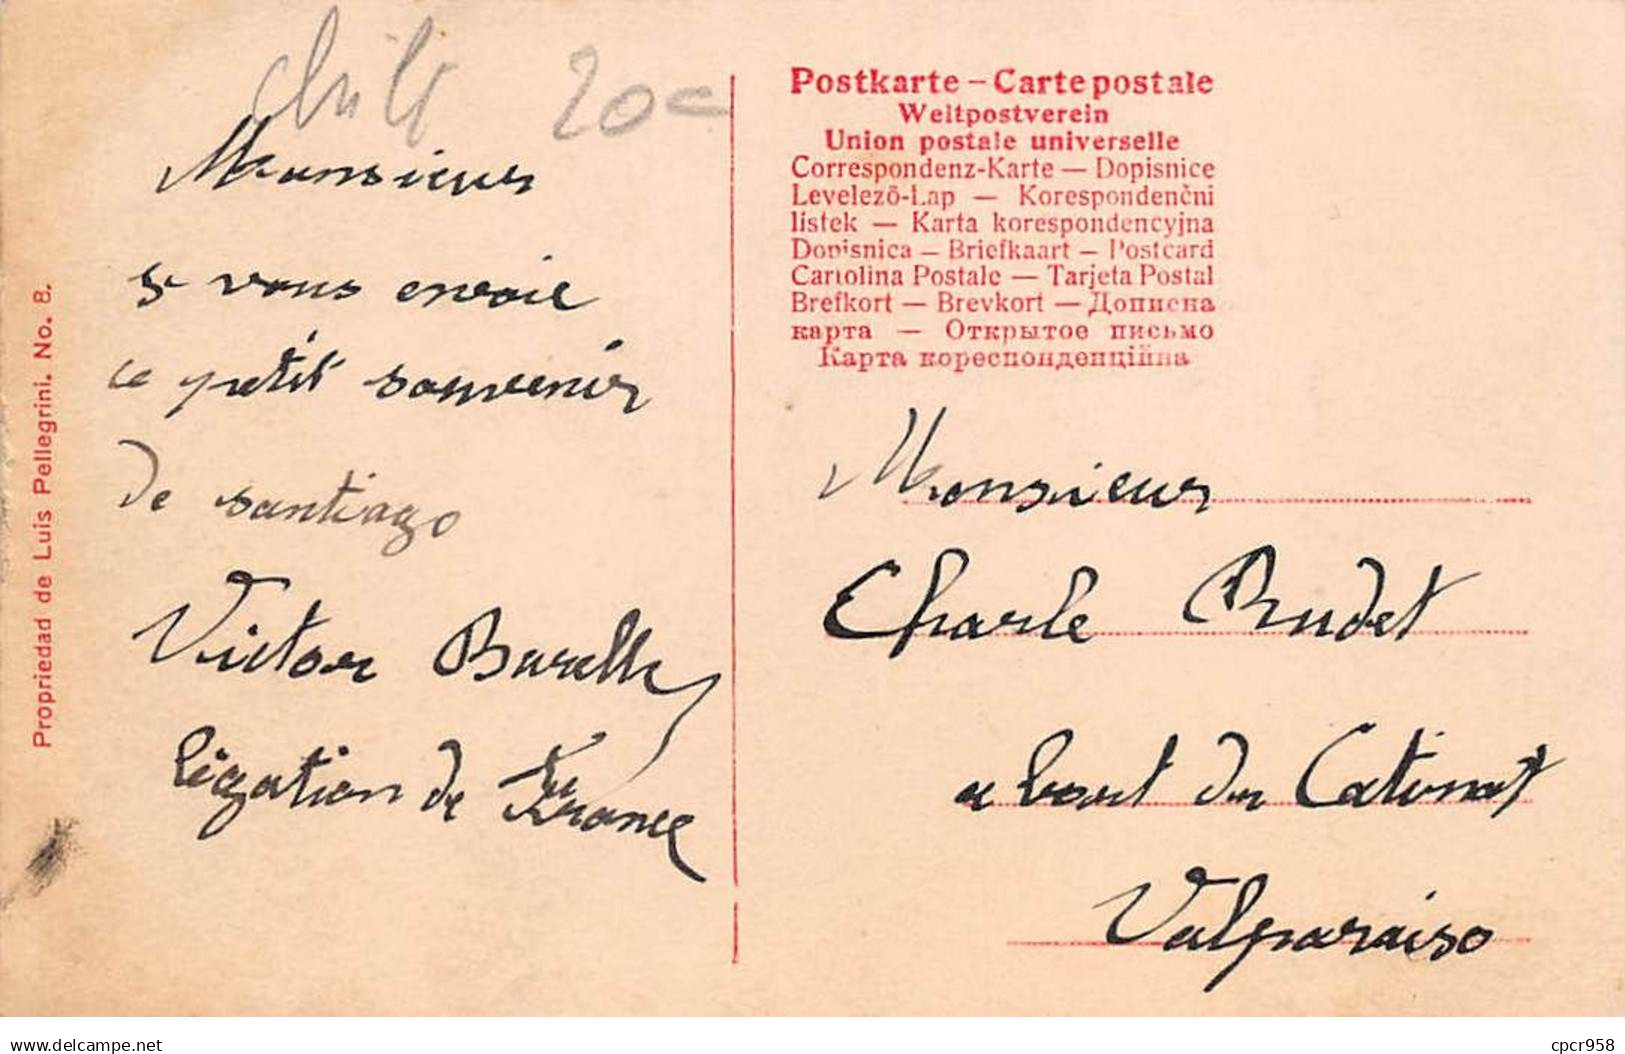 chili 20c
Monsieur
je vous envoie
ce petit souvenir
de santiago
Victor Borelly
légation de France
Propriedad de Luis Pellegrini. No. 8.
Postkarte – Carte postale
Weltpostverein
Union postale universelle
Correspondenz-Karte — Dopisnice
Levelező-Lap — Korespondenčni
listek — Karta korespondencyjna
Dopisnica — Briefkaart — Postcard
Cartolina Postale — Tarjeta Postal
Brefkort — Brevkort — Дописна
карта — Открытое письмо
Карта кореспонденційна
Monsieur
Charle Rudet
a bort du Catinat
Valparaiso
delcampe.net
cpcr958